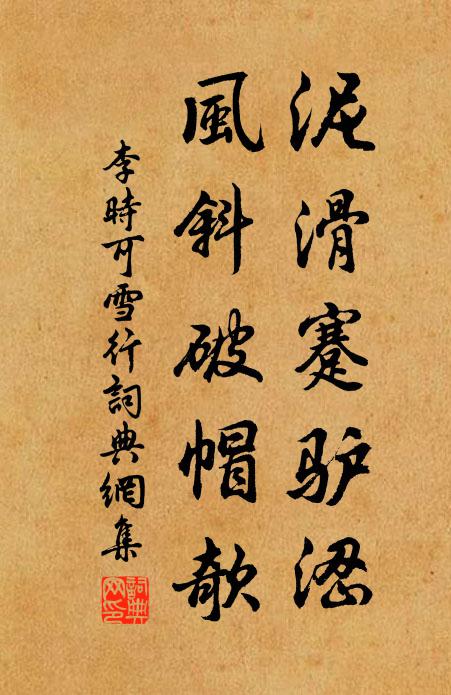 泥滑蹇驴涩
風斜破帽欹
李時可雪行詞典網集
詞典
网印